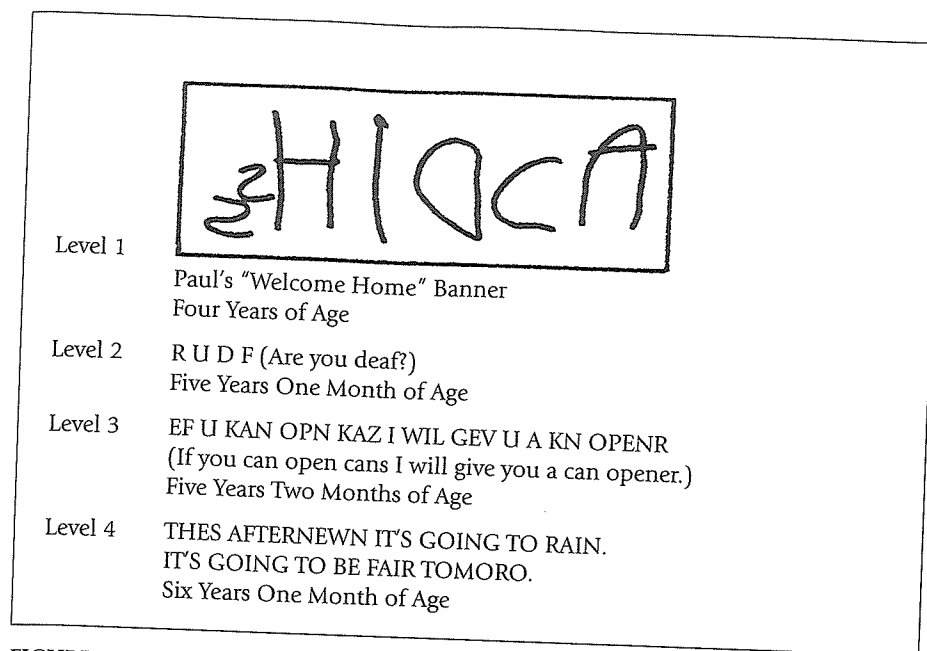 HIDCA
Level 1
Paul's "Welcome Home" Banner
Four Years of Age
Level 2 R U D F (Are you deaf?)
Five Years One Month of Age
Level 3 EF U KAN OPN KAZ I WIL GEV U A KN OPENR
(If you can open cans I will give you a can opener.)
Five Years Two Months of Age
Level 4 THES AFTERNEWN IT'S GOING TO RAIN.
IT'S GOING TO BE FAIR TOMORO.
Six Years One Month of Age